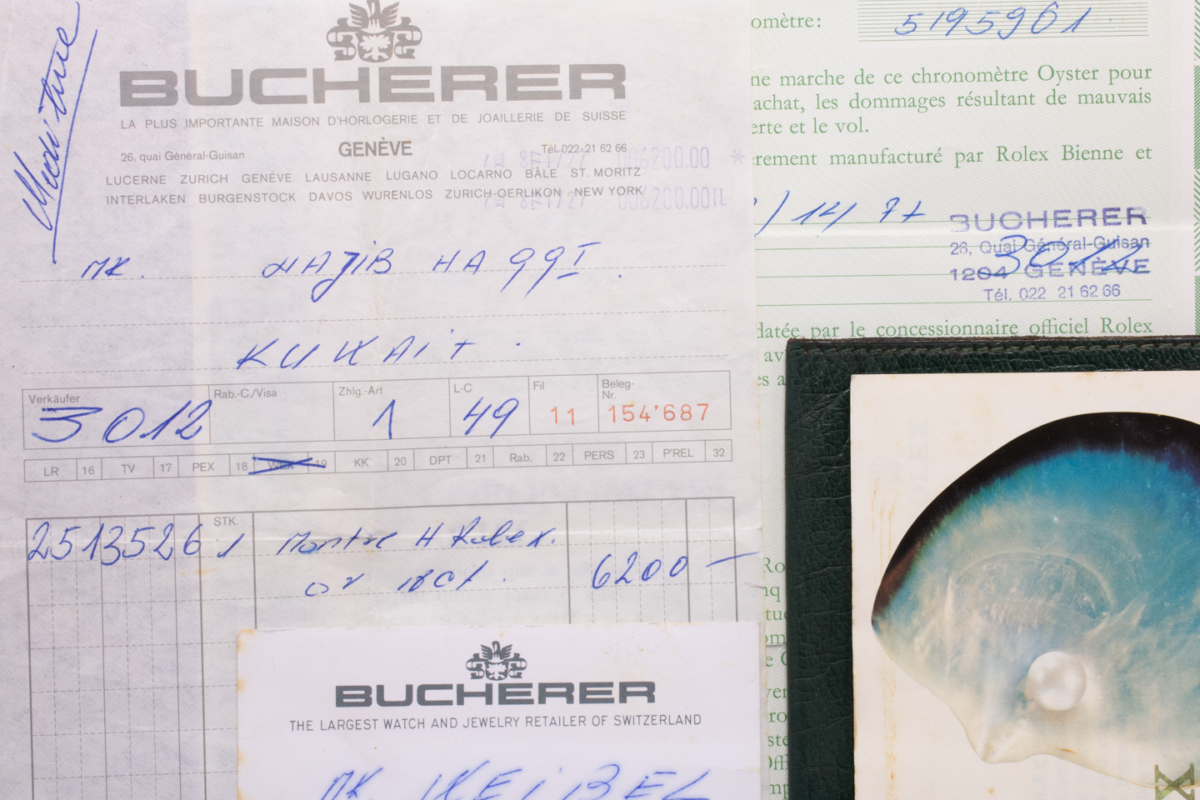 BUCHERER
LA PLUS IMPORTANTE MAISON D'HORLOGERIE ET DE JOAILLERIE DE SUISSE
26, quai Général-Guisan GENÈVE Tél. 022-21 62 66
006200.00 *
LUCERNE ZURICH GENÈVE LAUSANNE LUGANO LOCARNO BÂLE ST. MORITZ
INTERLAKEN BURGENSTOCK DAVOS WURENLOS ZURICH-OERLIKON NEW YORK
MR. NAJIB HA
KUWAIT.
Verkäufer Rab.-C./Visa Zhlg.-Art L-C Fil Beleg-Nr.
3012 1 49 11 154'687
LR 16 TV 17 PEX 18 19 KK 20 DPT 21 Rab. 22 PERS 23 P'REL 32
STK.
2513526 1 Montre H Rolex. 6200 —
or 18ct.
BUCHERER
THE LARGEST WATCH AND JEWELRY RETAILER OF SWITZERLAND
MR
omètre: 5195961
ne marche de ce chronomètre Oyster pour
achat, les dommages résultant de mauvais
erte et le vol.
rement manufacturé par Rolex Bienne et
/ 14 / 77
BUCHERER
26, Quai Général-Guisan
3012
1204 GENÈVE
Tél. 022 21 62 66
datée par le concessionnaire officiel Rolex